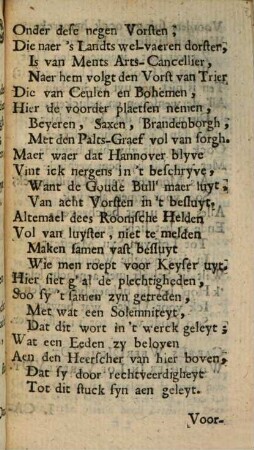 Onder dese negen Vorsten,
Die naer 's Landts wel-vaeren dorsten,
Is van Ments Arts-Cancellier,
Naer hem volgt den Vorst van Trier
Die van Ceulen en Bohemen,
Hier de voorder plaetsen nemen,
Beyeren, Saxen, Brandenborgh,
Met den Palts-Graef vol van sorgh.
Maer waer dat Hannover blyve
Vint ick nergens in 't beschryve,
Want de Goude Bull' maer luyt,
Van acht Vorsten in 't besluyt.
Altemael dees Roomsche Helden
Vol van luyster, niet te melden
Maken samen vast besluyt
Wie men roept voor Keyser uyt.
Hier siet g'al de plechtigheden,
Soo sy 't samen zyn getreden,
Met wat een Solemniteyt,
Dat dit wort in 't werck geleyt;
Wat een Eeden zy beloven
Aen den Heerscher van hier boven,
Dat sy door rechtveerdigheyt
Tot dit stuck syn aen geleyt.
Voor-